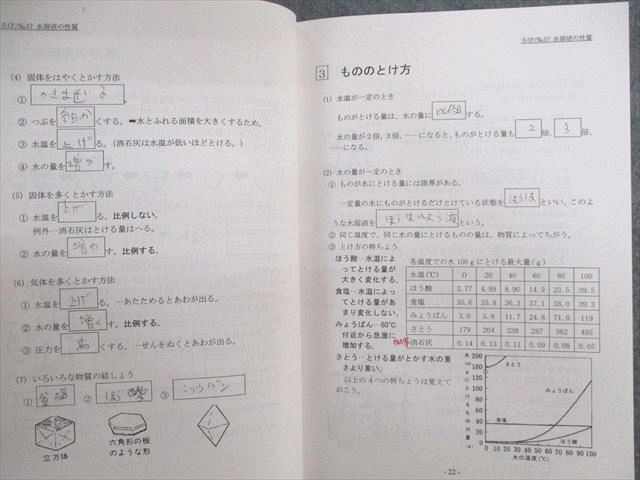 5CP/№37 水溶液の性質
(4) 固体をはやくとかす方法
① かきまぜる
② つぶを 細か くする。➡水とふれる面積を大きくするため。
③ 水温を 上げ る。(消石灰は水温が低いほどとける。)
④ 水の量を 増や す。
(5) 固体を多くとかす方法
① 水温を 上げ る。比例しない。
例外…消石灰とける量はへる。
② 水の量を 増や す。比例する。
(6) 気体を多くとかす方法
① 水温を 上げ る。…あたためるとあわが出る。
② 水の量を 増く す。比例する。
③ 圧力を 高 くする。…せんをぬくとあわが出る。
(7) いろいろな物質の結しょう
① 食塩 ② ほう酸 ③ ミョウバン
立方体
六角形の板
のような形
5CP/№37 水溶液の性質
3 もののとけ方
(1) 水温が一定のとき
ものがとける量は、水の量に 比例 する。
水の量が2倍,3倍,……になると,ものがとける量も 2 倍, 3 倍,
……になる。
(2) 水の量が一定のとき
① ものが水にとける量には限界がある。
一定量の水にものがとけるだけとけている状態を ほうわ といい、このよ
うな水溶液を ほうわ水よう液 という。
② 同じ温度で、同じ水の量にとけるものの量は、物質によってちがう。
③ とけ方の特ちょう
ほう酸…水温によ
ってとける量が
大きく変化する。
食塩…水温によっ
てとける量があ
まり変化しない。
みょうばん…60℃
付近から急激に
増加する。
さとう…とける量がとかす水の重
さより重い。
以上の4つの特ちょうは覚えて
おこう。
各温度での水100gにとける最大量(g)
水温(℃) 0 20 40 60 80 100
ほう酸 2.77 4.88 8.90 14.9 23.5 39.5
食塩 35.6 35.8 36.3 37.1 38.0 39.3
みょうばん 3.0 5.9 11.7 24.8 71.0 119
さとう 179 204 238 287 362 485
消石灰 0.14 0.13 0.11 0.09 0.08 0.05
200
180
160
140
120
100
80
60
40
20
0
さとう
みょうばん
食塩
ほう酸
0 10 20 30 40 50 60 70 80 90 100
水の温度(℃)
- 22 -